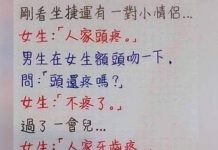 剛看坐捷運有一對小情侶…
女生:「人家頭疼。」
男生在女生額頭吻一下，
問:「頭還疼嗎?」
女生:「不疼了。」
過了一會兒…
女生:「人家牙齒疼…